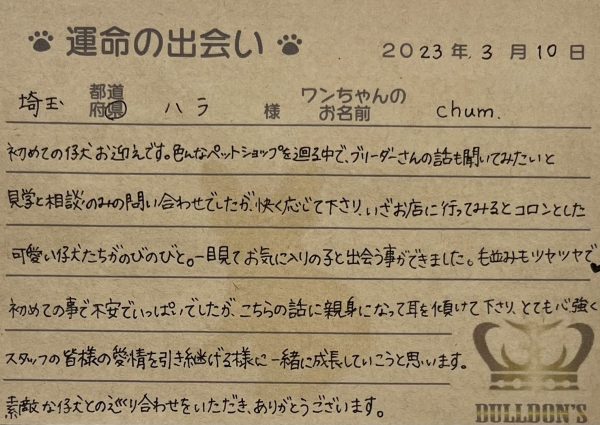 運命の出会い
2023年 3月10日
埼玉 都道府県 ハラ 様 ワンちゃんのお名前 chum.
初めての仔犬お迎えです。色んなペットショップを廻る中で、ブリーダーさんの話も聞いてみたいと
見学と相談のみの問い合わせでしたが、快く応じて下さり、いざお店に行ってみるとコロンとした
可愛い仔犬たちがのびのびと。一目見てお気に入りの子と出会う事ができました。毛並みもツヤツヤで♥
初めての事で不安でいっぱいでしたが、こちらの話に親身になって耳を傾けて下さり、とても心強く
スタッフの皆様の愛情を引き継げる様に一緒に成長していこうと思います。
素敵な仔犬との巡り合わせをいただき、ありがとうございます。
DULLDON'S